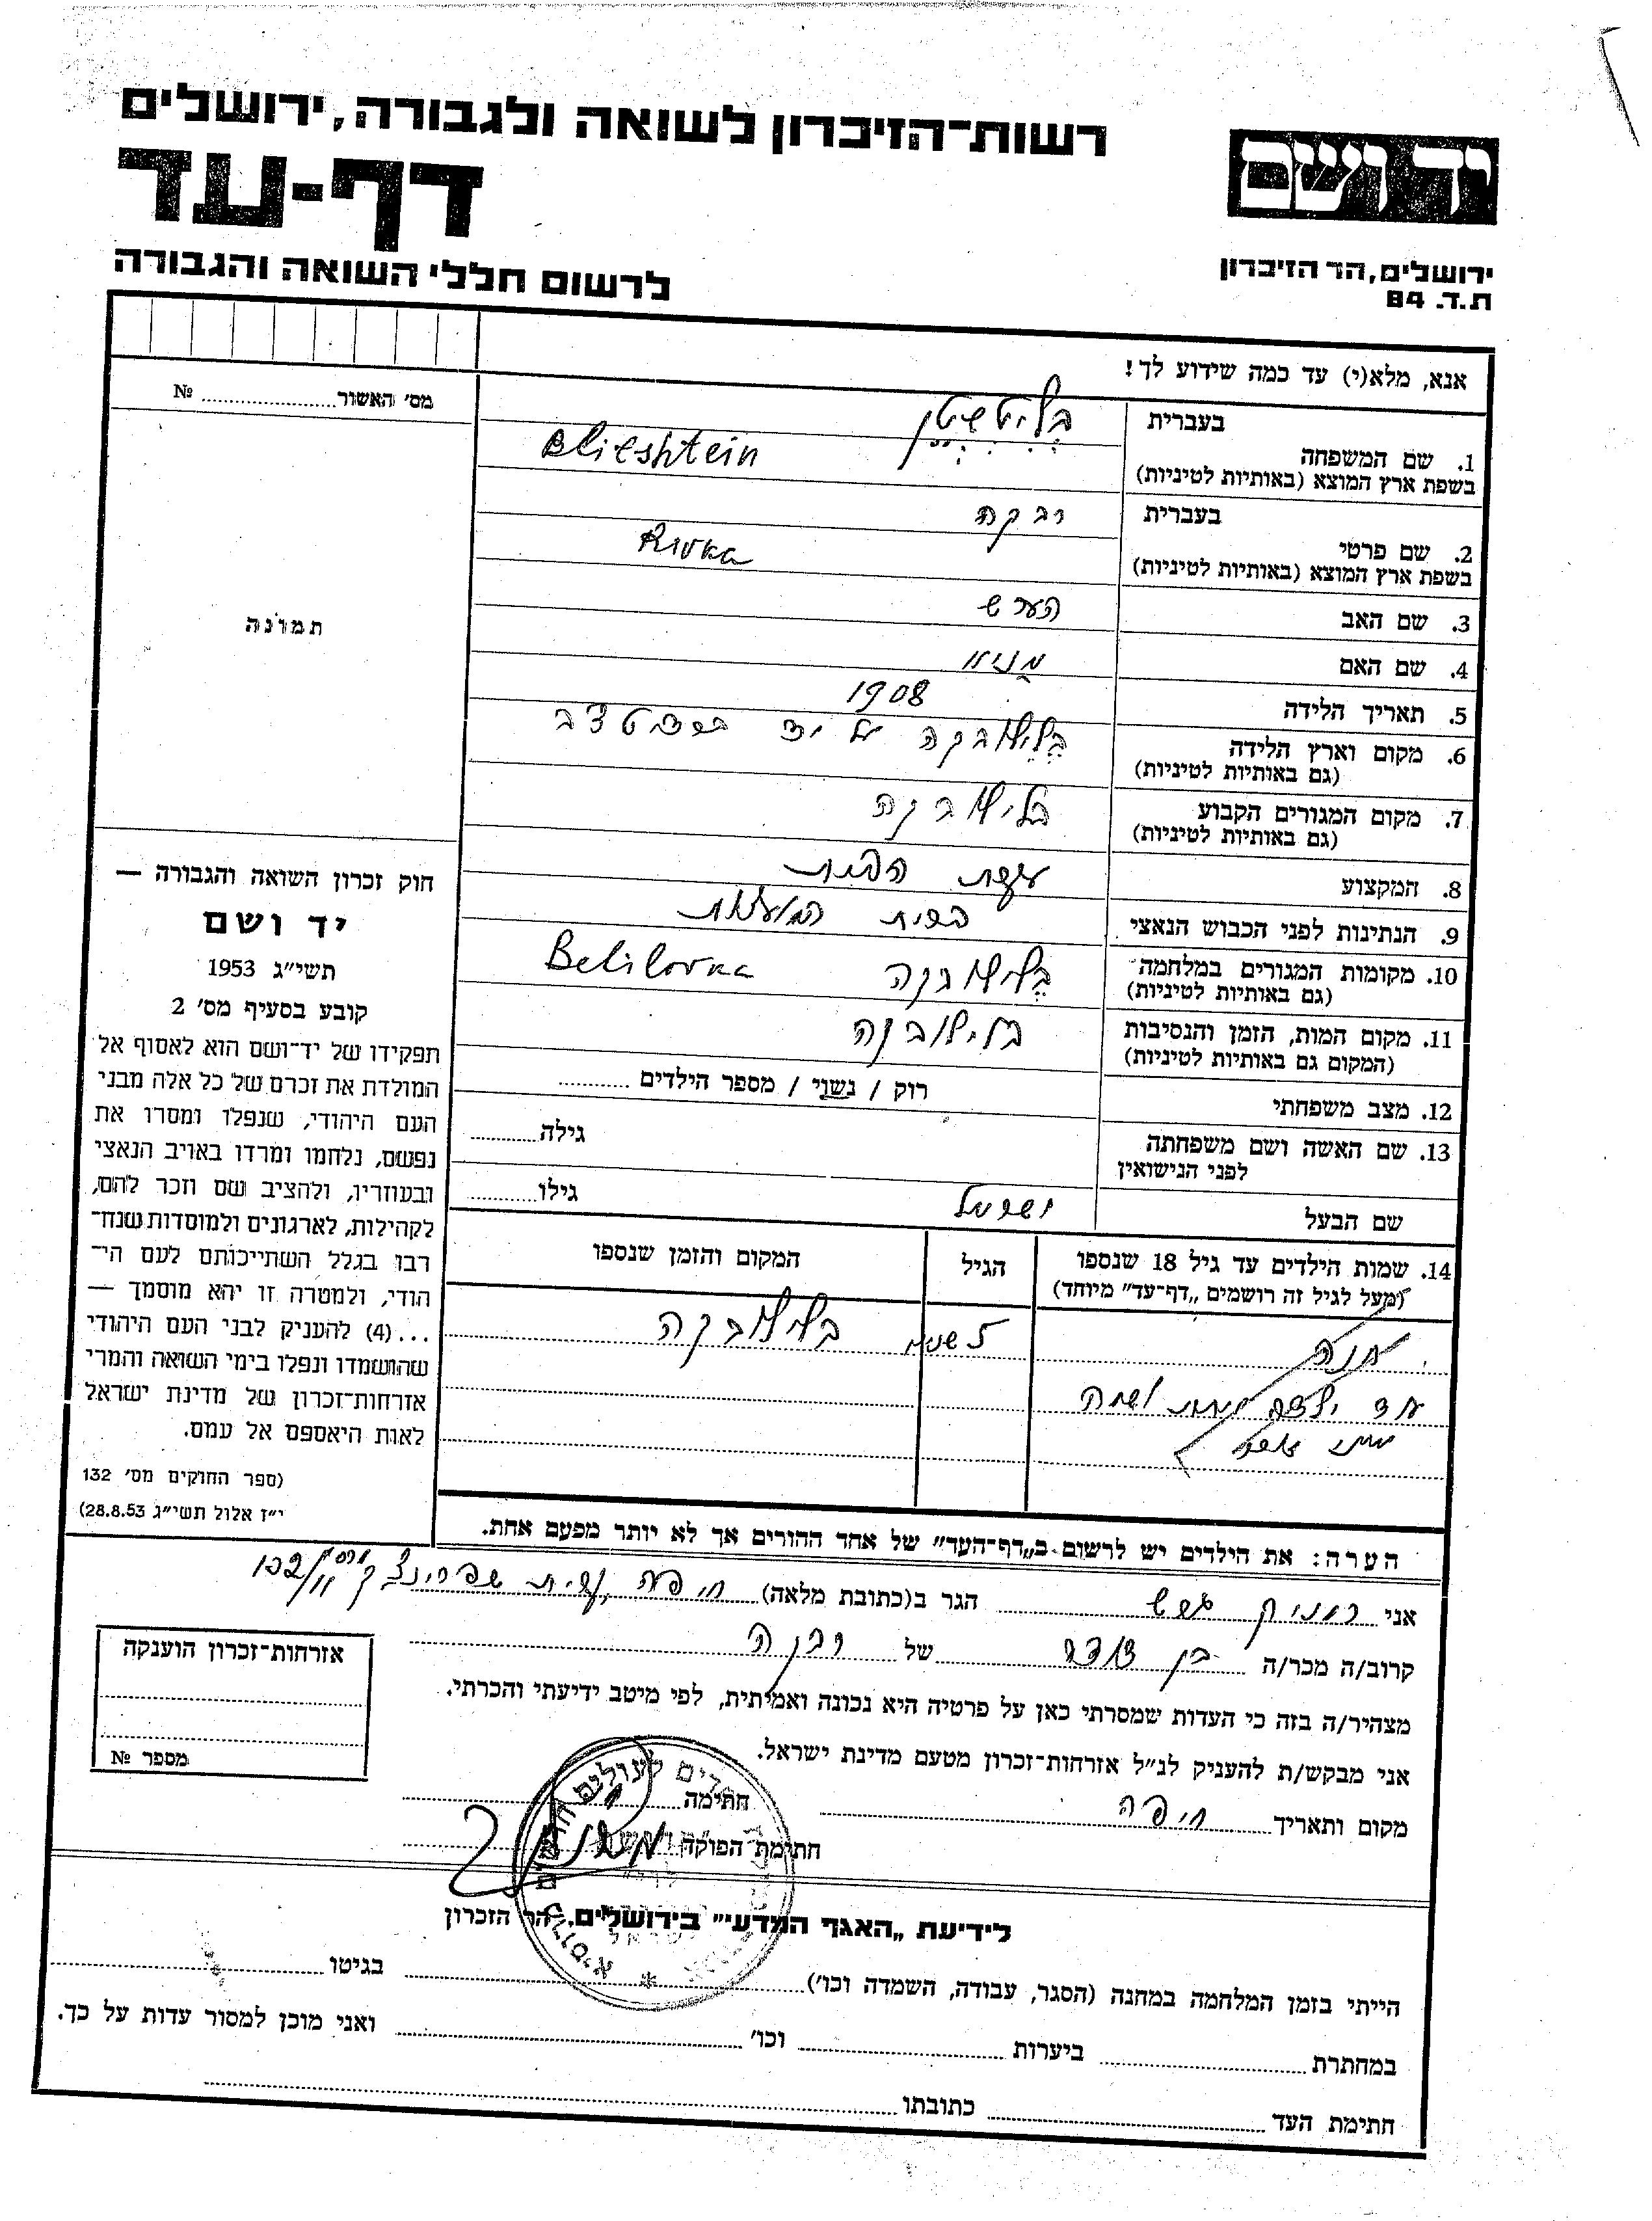 רשות־הזיכרון לשואה ולגבורה, ירושלים
יד ושם
דף-עד
ירושלים, הר הזיכרון
ת.ד. 84
לרשום חללי השואה והגבורה
אנא, מלא(י) עד כמה שידוע לך!
מס׳ האשור № 
בעברית
1. שם המשפחה
בשפת ארץ המוצא (באותיות לטיניות) Blieshtein
בעברית רבקה
2. שם פרטי
בשפת ארץ המוצא (באותיות לטיניות) Rivka
3. שם האב הערש
4. שם האם
5. תאריך הלידה 1908
6. מקום וארץ הלידה בלילובקה על יד
(גם באותיות לטיניות)
7. מקום המגורים הקבוע בלילובקה
(גם באותיות לטיניות)
8. המקצוע עקרת הבית
9. הנתינות לפני הכבוש הנאצי ברית המועצות
10. מקומות המגורים במלחמה בלילובקה Belilovka
(גם באותיות לטיניות)
11. מקום המות, הזמן והנסיבות בלילובקה
(המקום גם באותיות לטיניות)
12. מצב משפחתי רוק / נשוי / מספר הילדים
13. שם האשה ושם משפחתה גילה
לפני הנישואין
שם הבעל ישראל גילו
14. שמות הילדים עד גיל 18 שנספו הגיל המקום והזמן שנספו
(מעל לגיל זה רושמים „דף־עד” מיוחד)
חנה 5 שנים בלילובקה
עוד ילדה
הערה: את הילדים יש לרשום ב„דף־העד” של אחד ההורים אך לא יותר מפעם אחת.
תמונה
חוק זכרון השואה והגבורה —
יד ושם
תשי״ג 1953
קובע בסעיף מס׳ 2
תפקידו של יד־ושם הוא לאסוף אל
המולדת את זכרם של כל אלה מבני
העם היהודי, שנפלו ומסרו את
נפשם, נלחמו ומרדו באויב הנאצי
ובעוזריו, ולהציב שם וזכר להם,
לקהילות, לארגונים ולמוסדות שנח־
רבו בגלל השתייכותם לעם הי־
הודי, ולמטרה זו יהא מוסמך —
...(4) להעניק לבני העם היהודי
שהושמדו ונפלו בימי השואה והמרי
אזרחות־זכרון של מדינת ישראל
לאות היאספם אל עמם.
(ספר החוקים מס׳ 132
י״ז אלול תשי״ג 28.8.53)
אני הגר ב(כתובת מלאה) חיפה, קרית שפרינצק 132/11
קרוב/ה מכר/ה בן דוד של רבקה
מצהיר/ה בזה כי העדות שמסרתי כאן על פרטיה היא נכונה ואמיתית, לפי מיטב ידיעתי והכרתי.
אני מבקש/ת להעניק לנ״ל אזרחות־זכרון מטעם מדינת ישראל.
מקום ותאריך חיפה חתימה
חתימת הפוקד
אזרחות־זכרון הוענקה
מספר №
לידיעת „האגף המדעי” בירושלים, הר הזכרון
הייתי בזמן המלחמה במחנה (הסגר, עבודה, השמדה וכו׳) בגיטו
במחתרת ביערות וכו׳ ואני מוכן למסור עדות על כך.
חתימת העד כתובתו